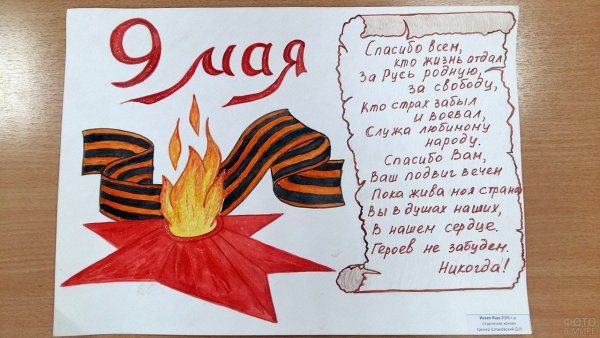 9 мая
Спасибо всем,
кто жизнь отдал
За Русь родную,
за свободу,
Кто страх забыл
и воевал,
Служа любимому
народу.
Спасибо Вам,
Ваш подвиг вечен
Пока жива моя страна
Вы в душах наших,
В нашем сердце.
Героев не забудем.
Никогда!
2005 г.р.
отделение
ФОТО
В МИРЕ